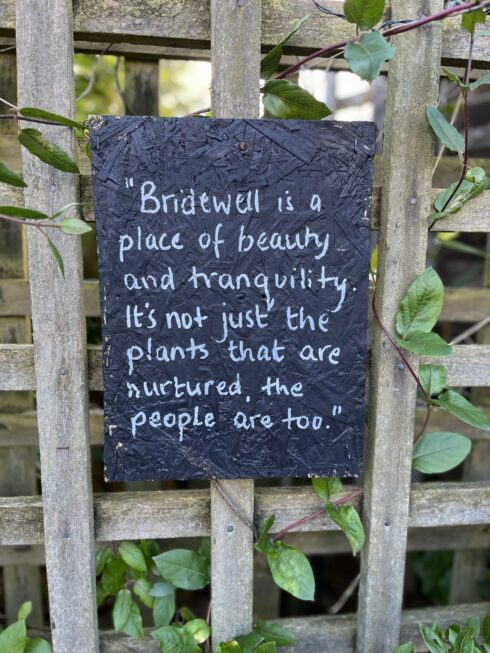 "Bridewell is a
place of beauty
and tranquility.
It's not just the
plants that are
nurtured, the
people are too."